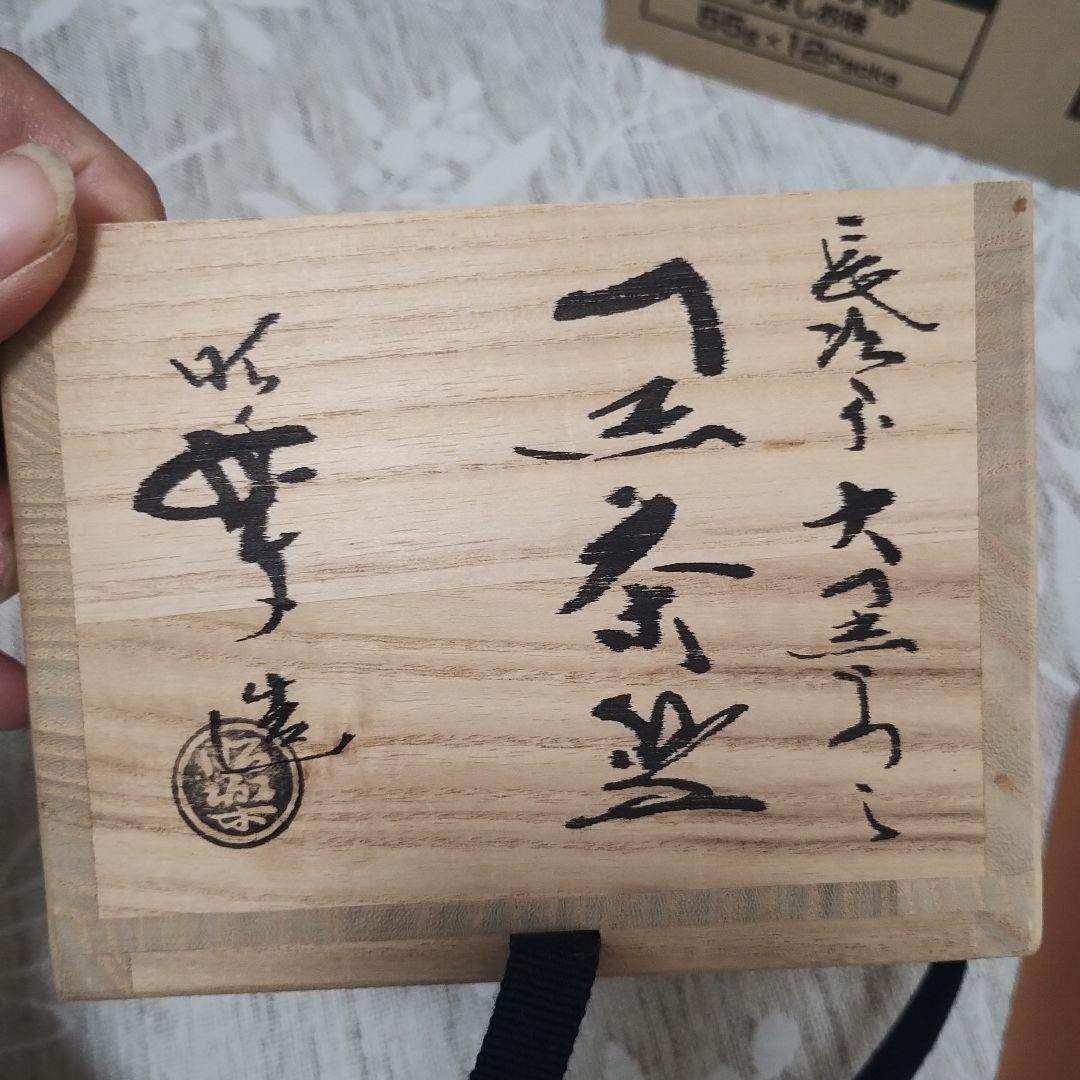 55g×12Packs
長次郎 大黒うつし
黒茶盌
昭楽造